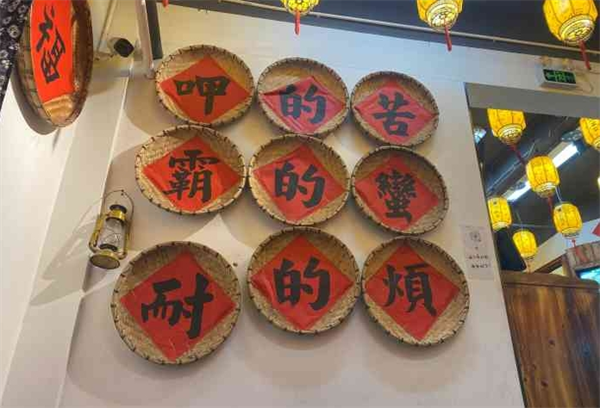 福
呷的苦
霸的蠻
耐的煩